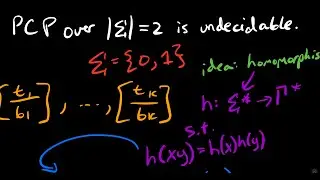 PCP over |Σ|=2 is undecidable.
Σ={0,1}
idea: homomorphis
[t₁/b₁], ..., [tₖ/bₖ]
h: Σ* → Γ*
s.t.
h(xy)=h(x)h(y)